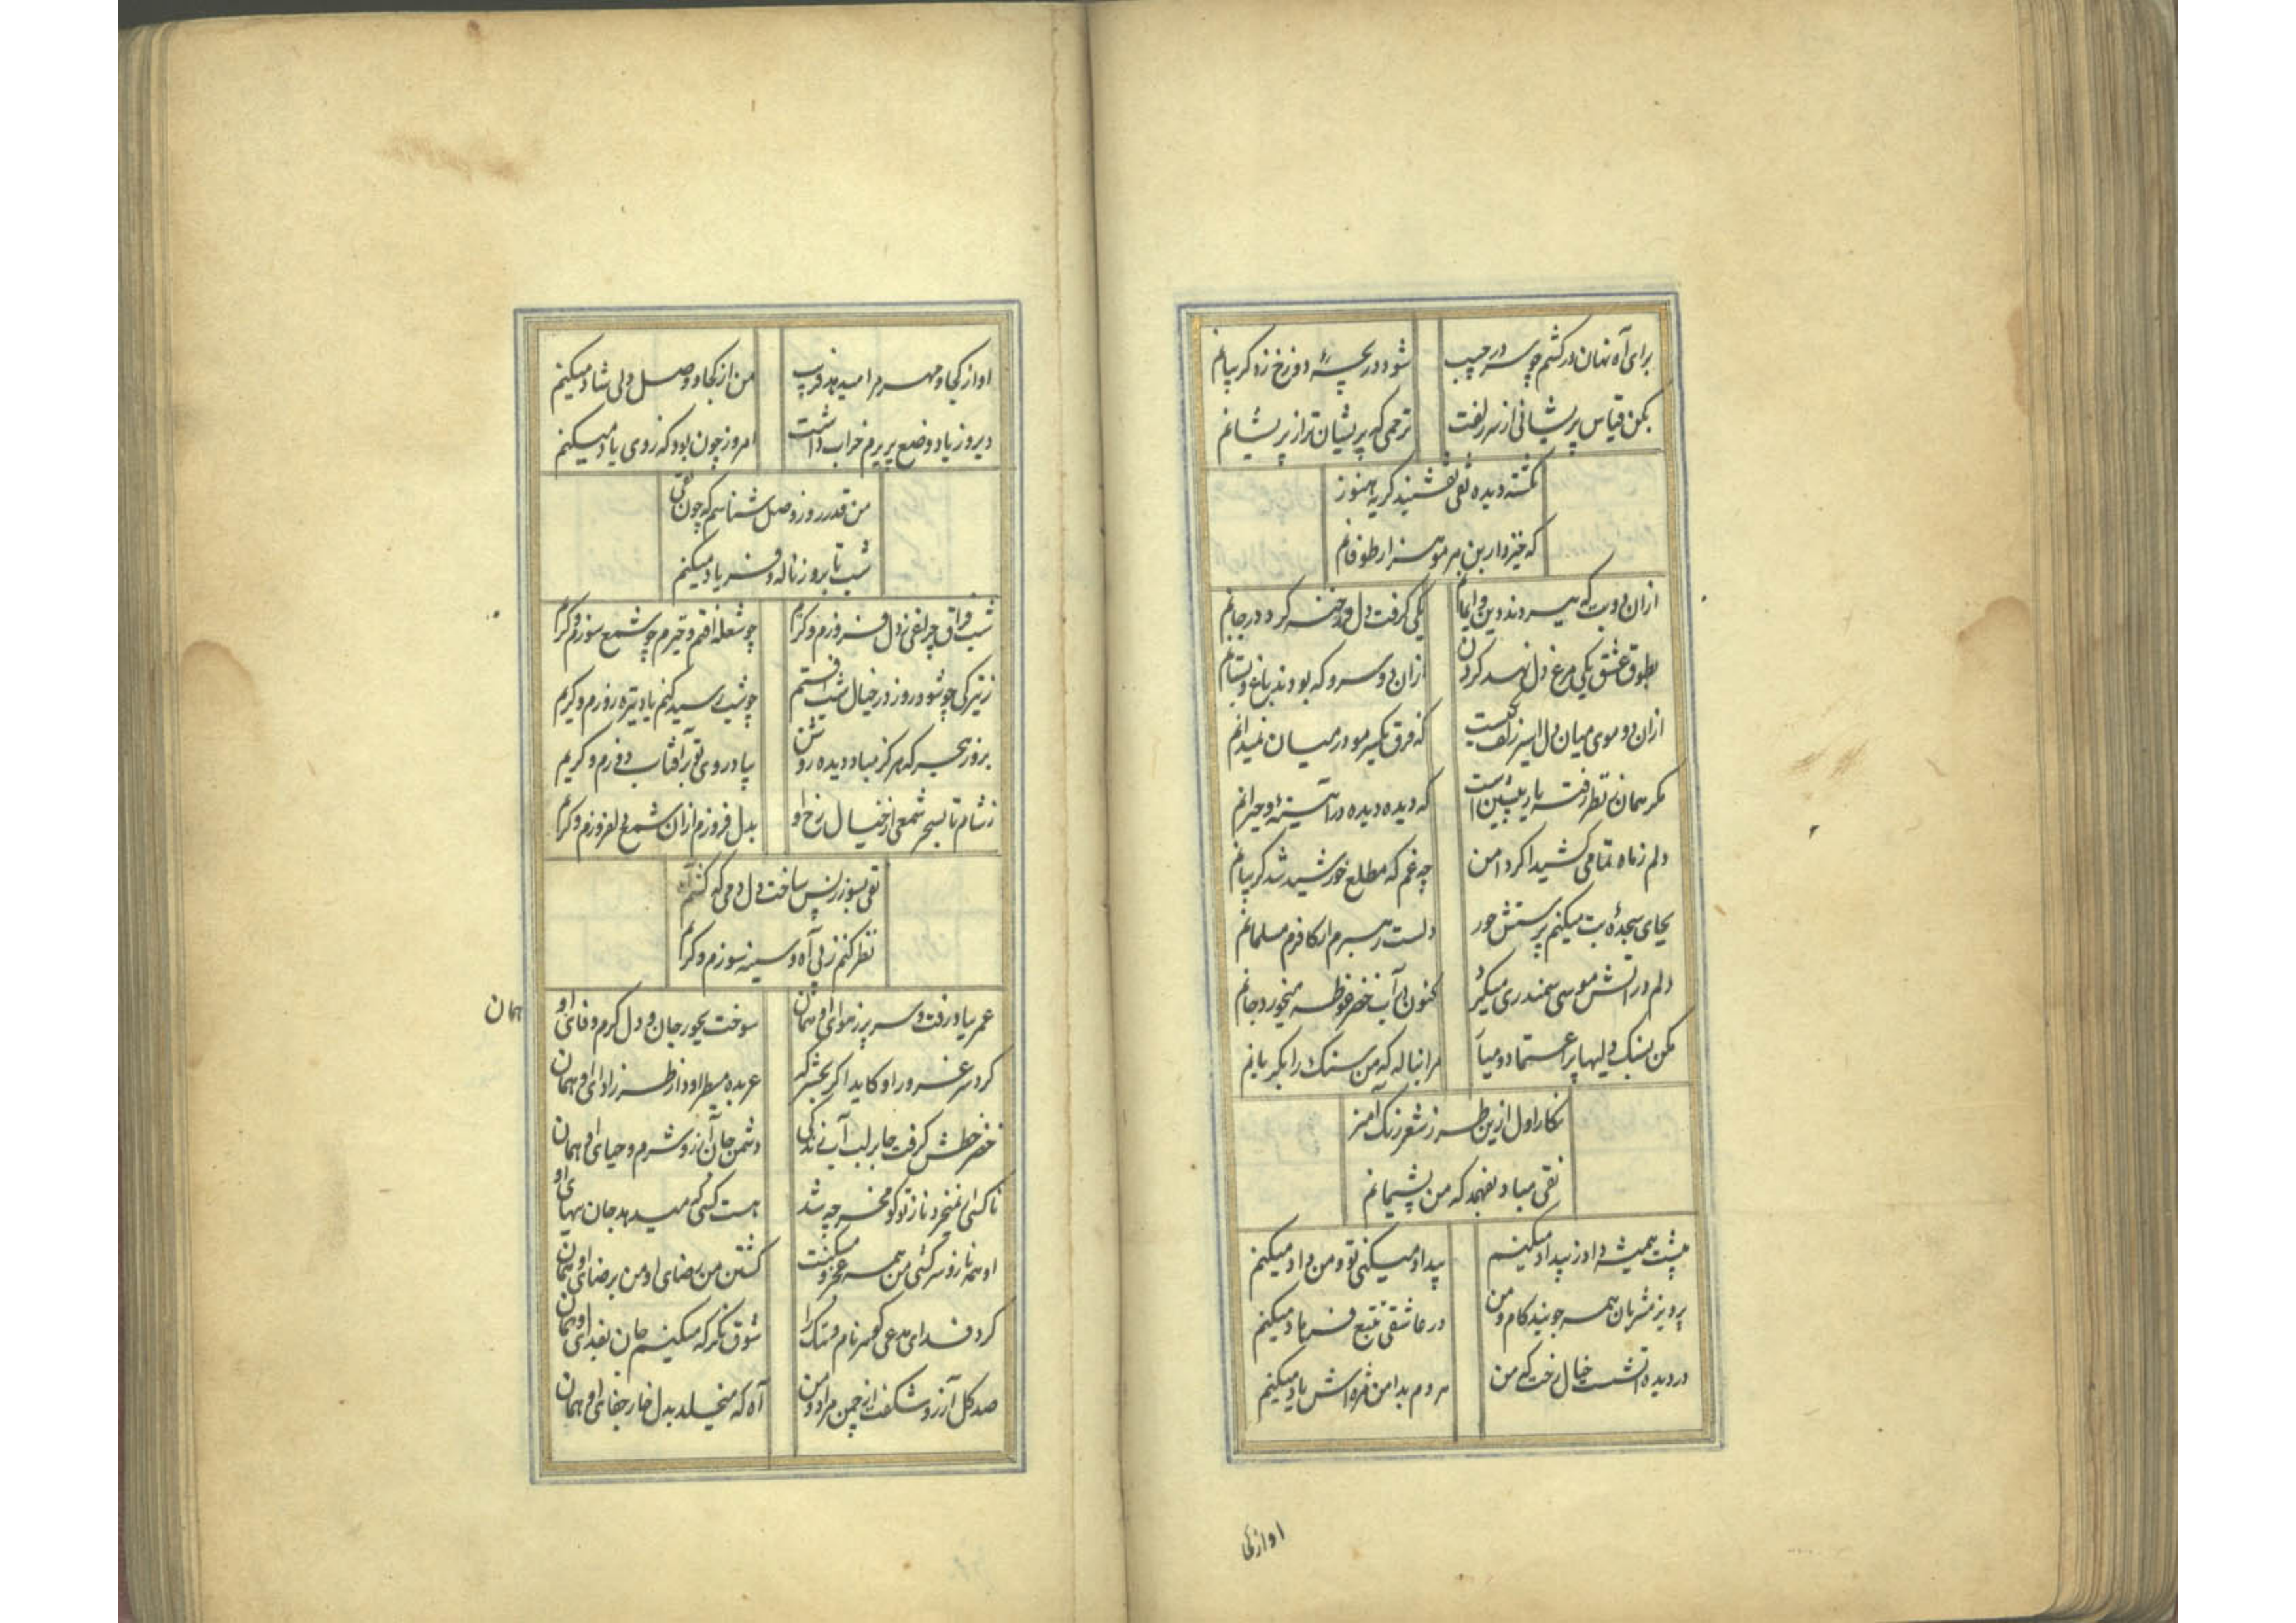 برای آه نهان درکشم چو سر در جیب
شود دریچهٔ دوزخ زه کریبانم
مکن قیاس پریشانی از سر زلفت
ترحمی که پریشان تر از پریشانم
نکشته دیده نقی نقشبند کریه هنوز
که خیزد از بن هر مو هزار طوفانم
ازان دو بت که سپردند دین و ایمانم
یکی کرفت دل و رخنه کرد در جانم
بطوق عشق یکی مرغ دل نهد کردن
ازان دو سرو که بودند باغ و بستانم
ازان دو موی میان دل اسیر زلف یکیست
که فرق یکسر مو در میان نمیدانم
مکر همان بنظر رفته یار پیشین است
که دیده دیده در آیینهٔ و حیرانم
دلم ز ماه تمامی کشید اکر دامن
چه غم که مطلع خورشید شد کریبانم
بجای سجدهٔ بت میکنم پرستش حور
دلست رهبرم ار کافرم مسلمانم
دلم در آتش موسی سمندری میکرد
کنون در آب خضر غوطه میخورد جانم
مکن بسنک دلیها بر اعتماد و میا
مرا بناله که من سنک را بکریانم
نکار اول ازین طرز شعر رنک آمیز
نقی مباد بفهمد که من پشیمانم
پیشت همیشه داد ز بیداد میکنم
بیداد میکنی تو و من داد میکنم
پرویز مشربان همه جویند کام و من
در عاشقی تتبع فرهاد میکنم
در دیده تشت خیال رخت که من
مردم بدامن مژه اش باد میکنم
او از کجا
او از کجا و مهرم امید بد فریب
من از کجا و وصل دلی شاد میکنم
دیروز یاد وضع پریرم خراب داشت
امروز چون بود که ز دی یاد میکنم
من قدر روز وصل شناسم که چون نقی
شب تا بروز ناله و فریاد میکنم
شب فراق چراغی ز دل فروزم و کریم
چو شعله افتم و خیزم چو شمع سوزم و کریم
ز تیرکی چو شود روز در خیال شب افتم
چو شب رسید کنم یاد تیره روزم و کریم
بروز هجر که هرکز مباد دیده روشن
بیاد روی تو بر آفتاب دوزم و کریم
ز شام تا بسحر شمعی از خیال رخ او
بدل فروزم ازان شمع دلفروزم و کریم
نقی بسوز نفس ساخت دل دمی که کشم آه
نظر کنم ز پی آه و سینه سوزم و کریم
عمر بباد رفت و سر پر ز هوای او همان
سوخت بجور جان و دل کرم وفای او
همان
کرد سر غرور او کاید اکر بحشر که
عربده میطراود از طرز ادای او همان
خضر خطش کرفت جا بر لب آب زندکی
دشمن جان آرزو شرم و حیای او همان
ناکسی ار نمیخرد ناز تو کو مخر چه شد
هست کسی که میدهد جان ببهای او
او همه ناز و سرکشی من همه عجز و مسکنت
کشتن من رضای او من برضای او همان
کرد فدای مدعی کوهر نام و ننک را
شوق نکر که میکنم جان بفدای او همان
صد کل آرزو شکفت از چمن مراد و من
آه که میخلد بدل خار جفای او همان